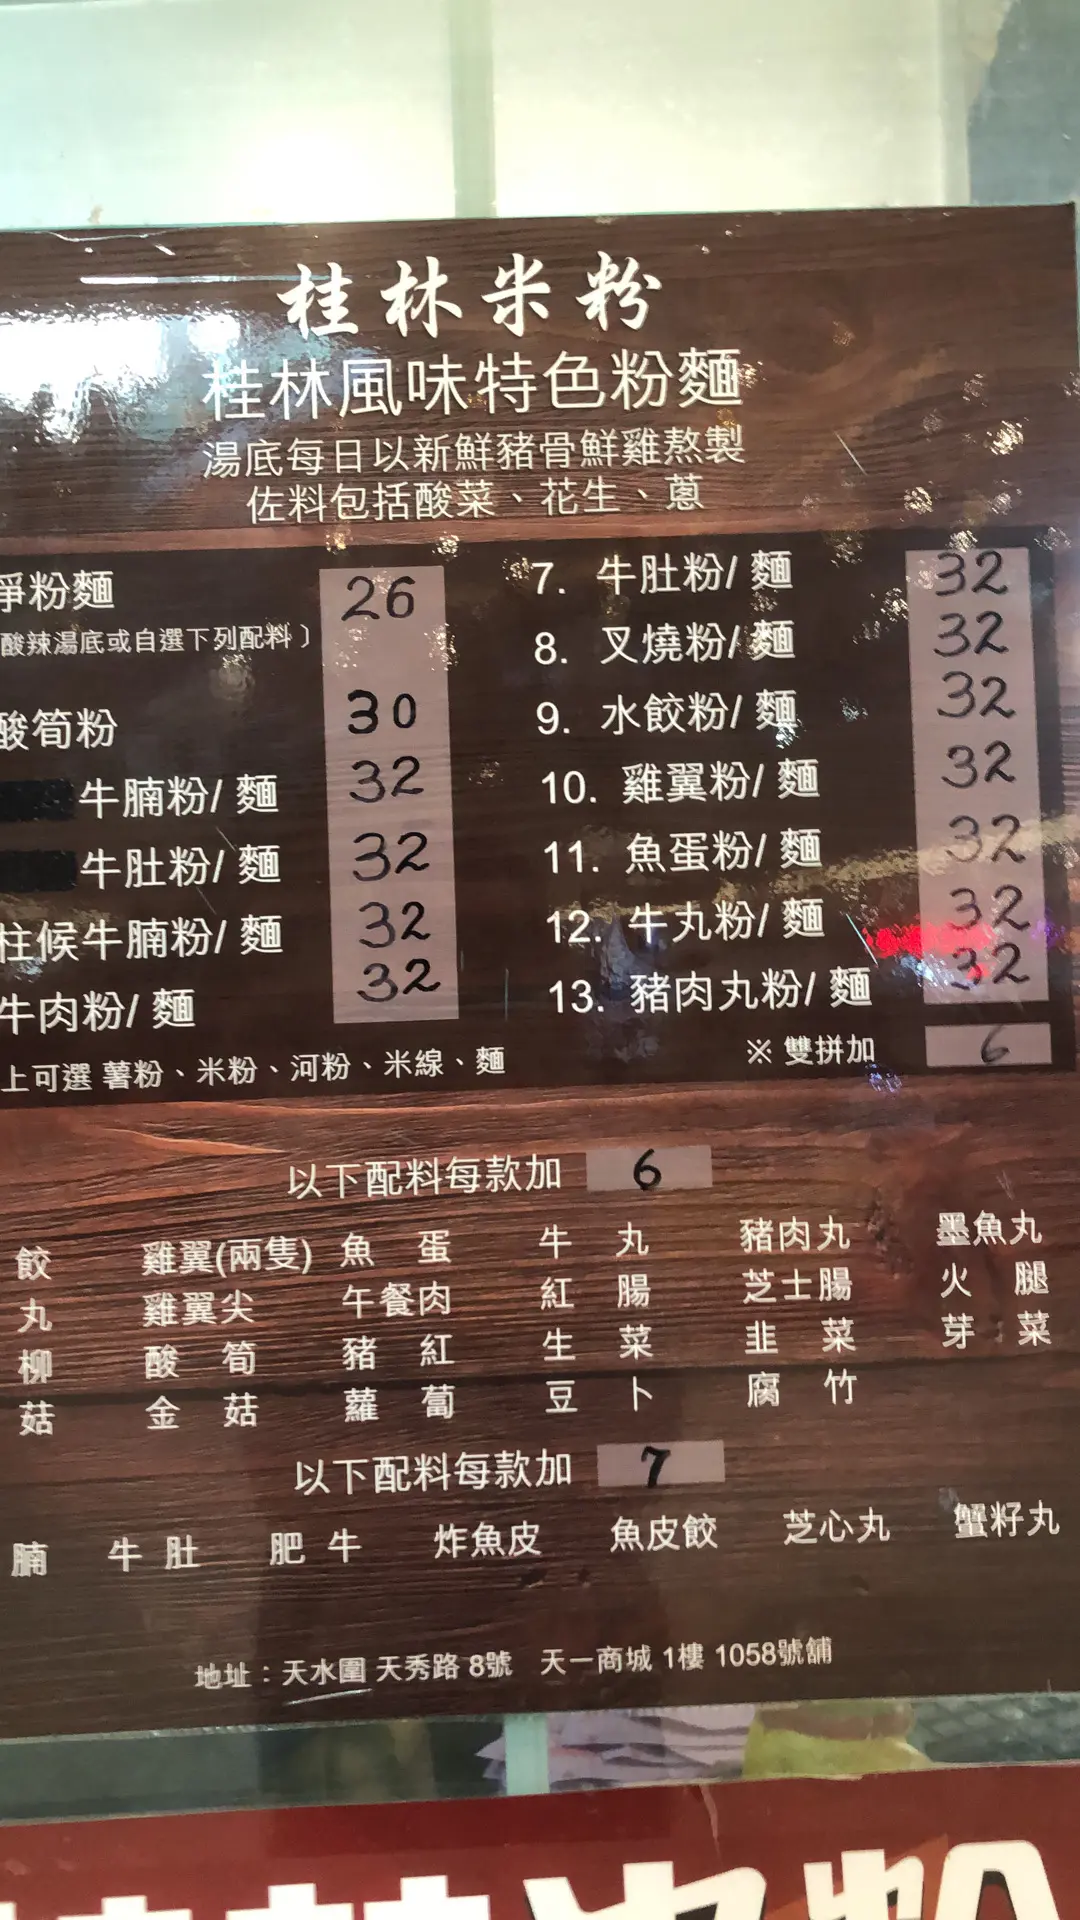 桂林米粉
桂林風味特色粉麵
湯底每日以新鮮豬骨鮮雞熬製
佐料包括酸菜、花生、蔥
淨粉麵 26
酸辣湯底或自選下列配料〕
酸筍粉 30
牛腩粉/ 麵 32
牛肚粉/ 麵 32
柱候牛腩粉/ 麵 32
牛肉粉/ 麵 32
上可選 薯粉、米粉、河粉、米線、麵
7. 牛肚粉/ 麵 32
8. 叉燒粉/ 麵 32
9. 水餃粉/ 麵 32
10. 雞翼粉/ 麵 32
11. 魚蛋粉/ 麵 32
12. 牛丸粉/ 麵 32
13. 豬肉丸粉/ 麵 32
※ 雙拼加 6
以下配料每款加 6
餃 雞翼(兩隻) 魚蛋 牛丸 豬肉丸 墨魚丸
丸 雞翼尖 午餐肉 紅腸 芝士腸 火腿
柳 酸筍 豬紅 生菜 韭菜 芽菜
菇 金菇 蘿蔔 豆卜 腐竹
以下配料每款加 7
腩 牛肚 肥牛 炸魚皮 魚皮餃 芝心丸 蟹籽丸
地址：天水圍 天秀路 8號 天一商城 1樓 1058號舖